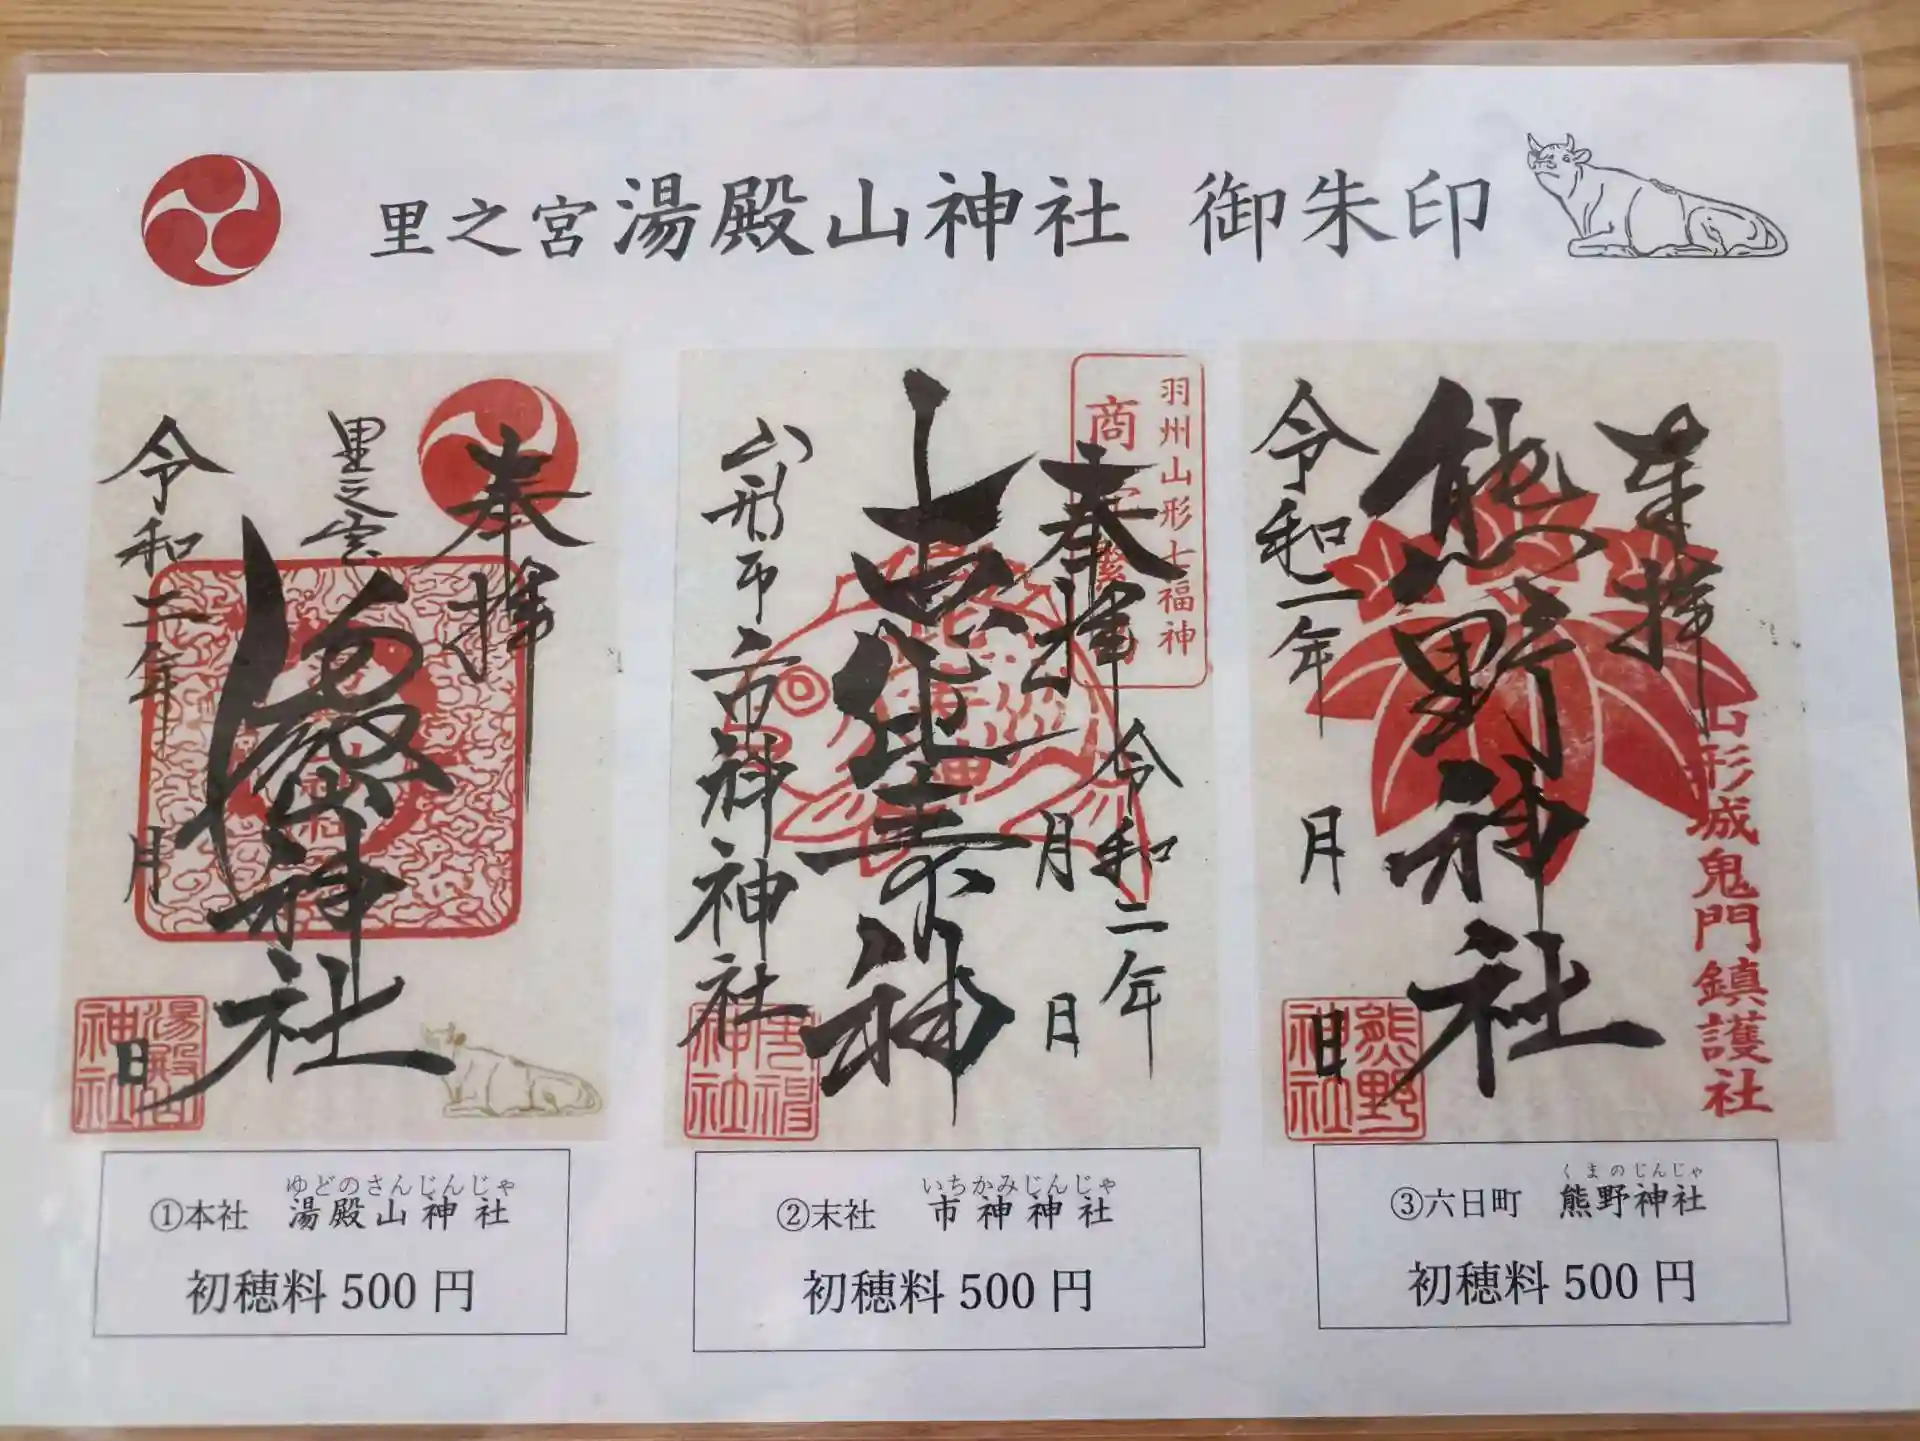 里之宮 湯殿山神社 御朱印
奉拝
里之宮
湯殿山神社
令和二年
月
日
羽州山形七福神
奉拝
令和二年
月
日
恵比寿神
山形市 市神神社
奉拝
熊野神社
令和二年
月
日
山形城鬼門鎮護社
熊野神社
ゆどのさんじんじゃ
①本社 湯殿山神社
初穂料500円
いちかみじんじゃ
②末社 市神神社
初穂料500円
くまのじんじゃ
③六日町 熊野神社
初穂料500円